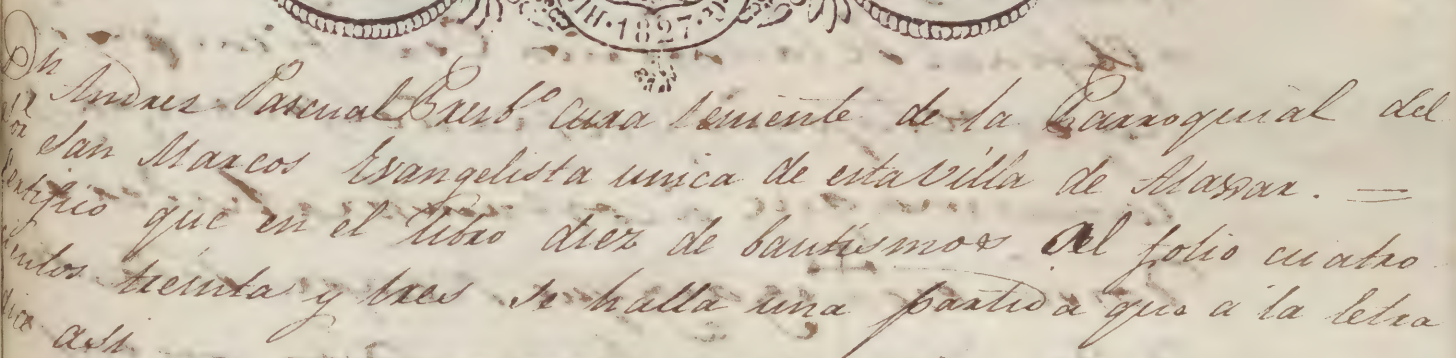 1827
Dn
Andres Pascual Presb.º Cura teniente de la Parroquial del
San Marcos Evangelista unica de esta villa de
Certifico que en el libro diez de bautismos al folio cuatro
cientos treinta y tres se halla una partida que a la letra
dice asi